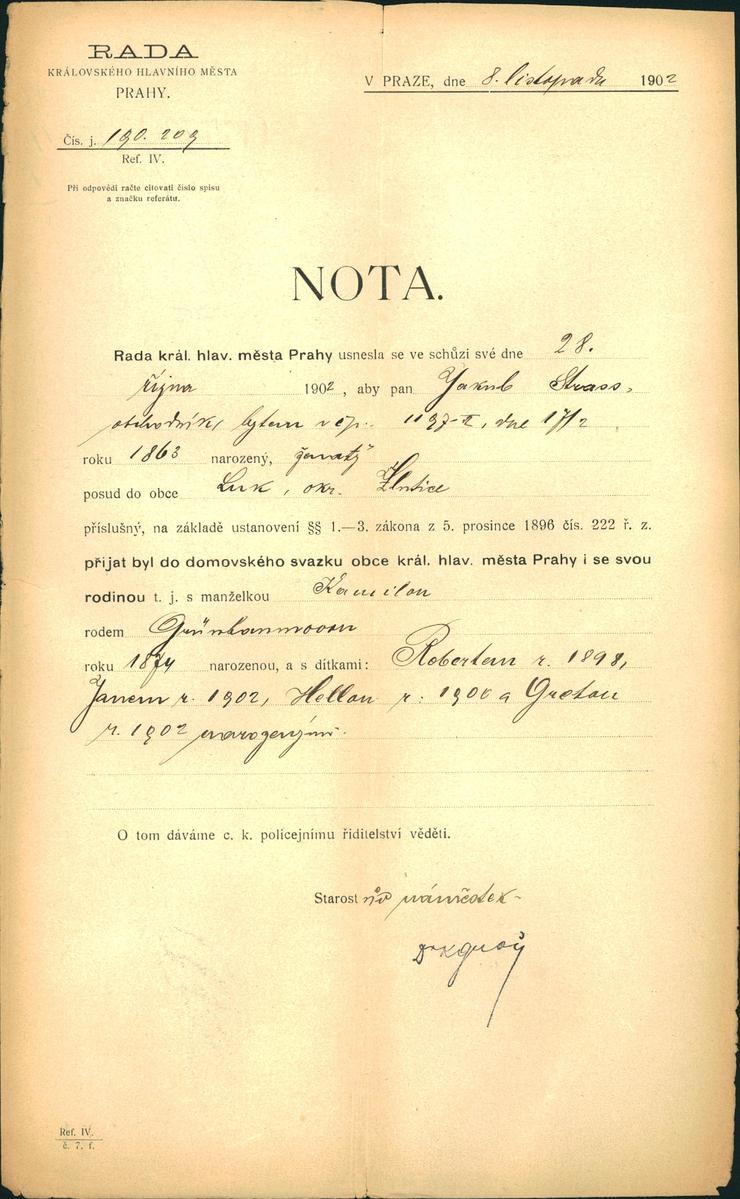 RADA
KRÁLOVSKÉHO HLAVNÍHO MĚSTA
PRAHY.
V PRAZE, dne 8. listopadu 1902
Čís. j. 190.209
Ref. IV.
Při odpovědi račte citovati číslo spisu
a značku referátu.
NOTA.
Rada král. hlav. města Prahy usnesla se ve schůzi své dne 28.
října 1902, aby pan Jakub Strass,
obchodník, bytem v čp. 1197-II, dne 17/2
roku 1863 narozený, ženatý
posud do obce Luk, okr. Žlutice
příslušný, na základě ustanovení §§ 1.—3. zákona z 5. prosince 1896 čís. 222 ř. z.
přijat byl do domovského svazku obce král. hlav. města Prahy i se svou
rodinou t. j. s manželkou Kamilou
rodem Grünbaumovou
roku 1874 narozenou, a s dítkami: Robertem r. 1898,
Janem r. 1902, Hellou r. 1900 a Gretou
r. 1902 narozenými.
O tom dáváme c. k. policejnímu řiditelství věděti.
Starostův náměstek
Ref. IV.
č. 7. f.